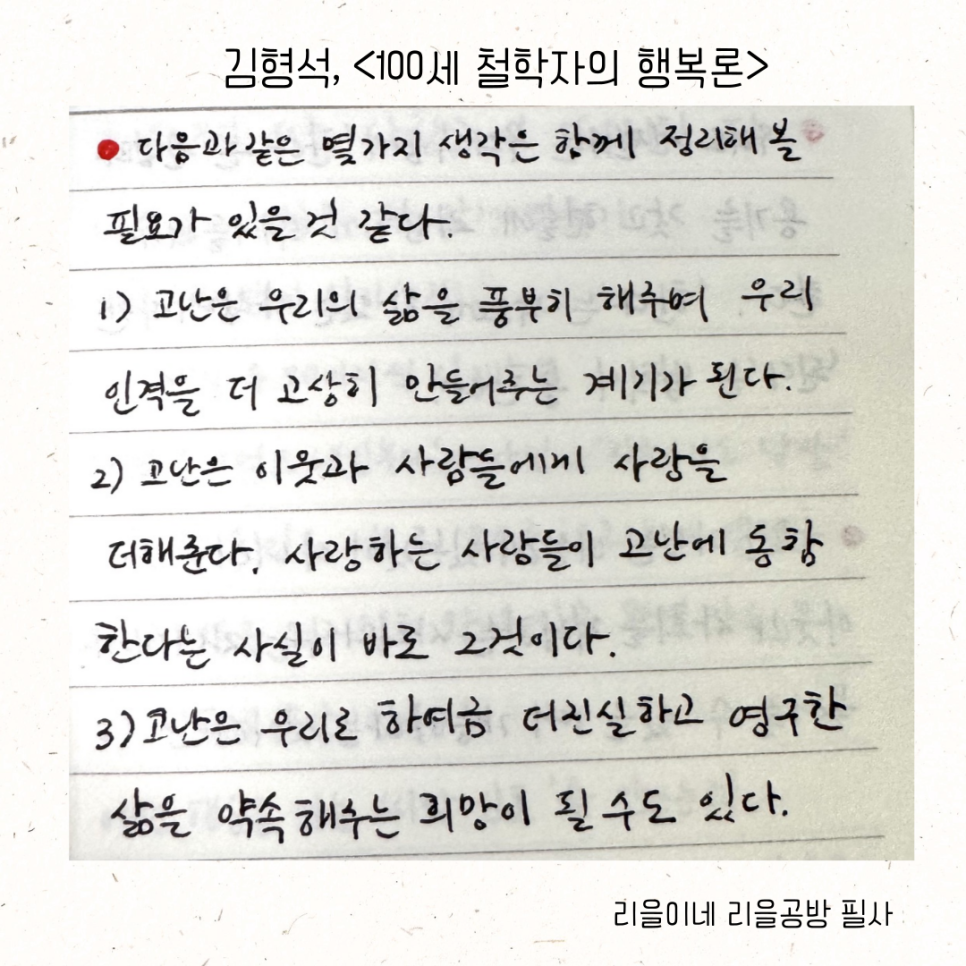 김형석, <100세 철학자의 행복론>
● 다음과 같은 몇가지 생각은 함께 정리해 볼
필요가 있을 것 같다.
1) 고난은 우리의 삶을 풍부히 해주며 우리
인격을 더 고상히 만들어주는 계기가 된다.
2) 고난은 이웃과 사람들에게 사랑을
더해준다. 사랑하는 사람들이 고난에 동참
한다는 사실이 바로 그것이다.
3) 고난은 우리로 하여금 더 진실하고 영구한
삶을 약속해주는 희망이 될 수도 있다.
리을이네 리을공방 필사